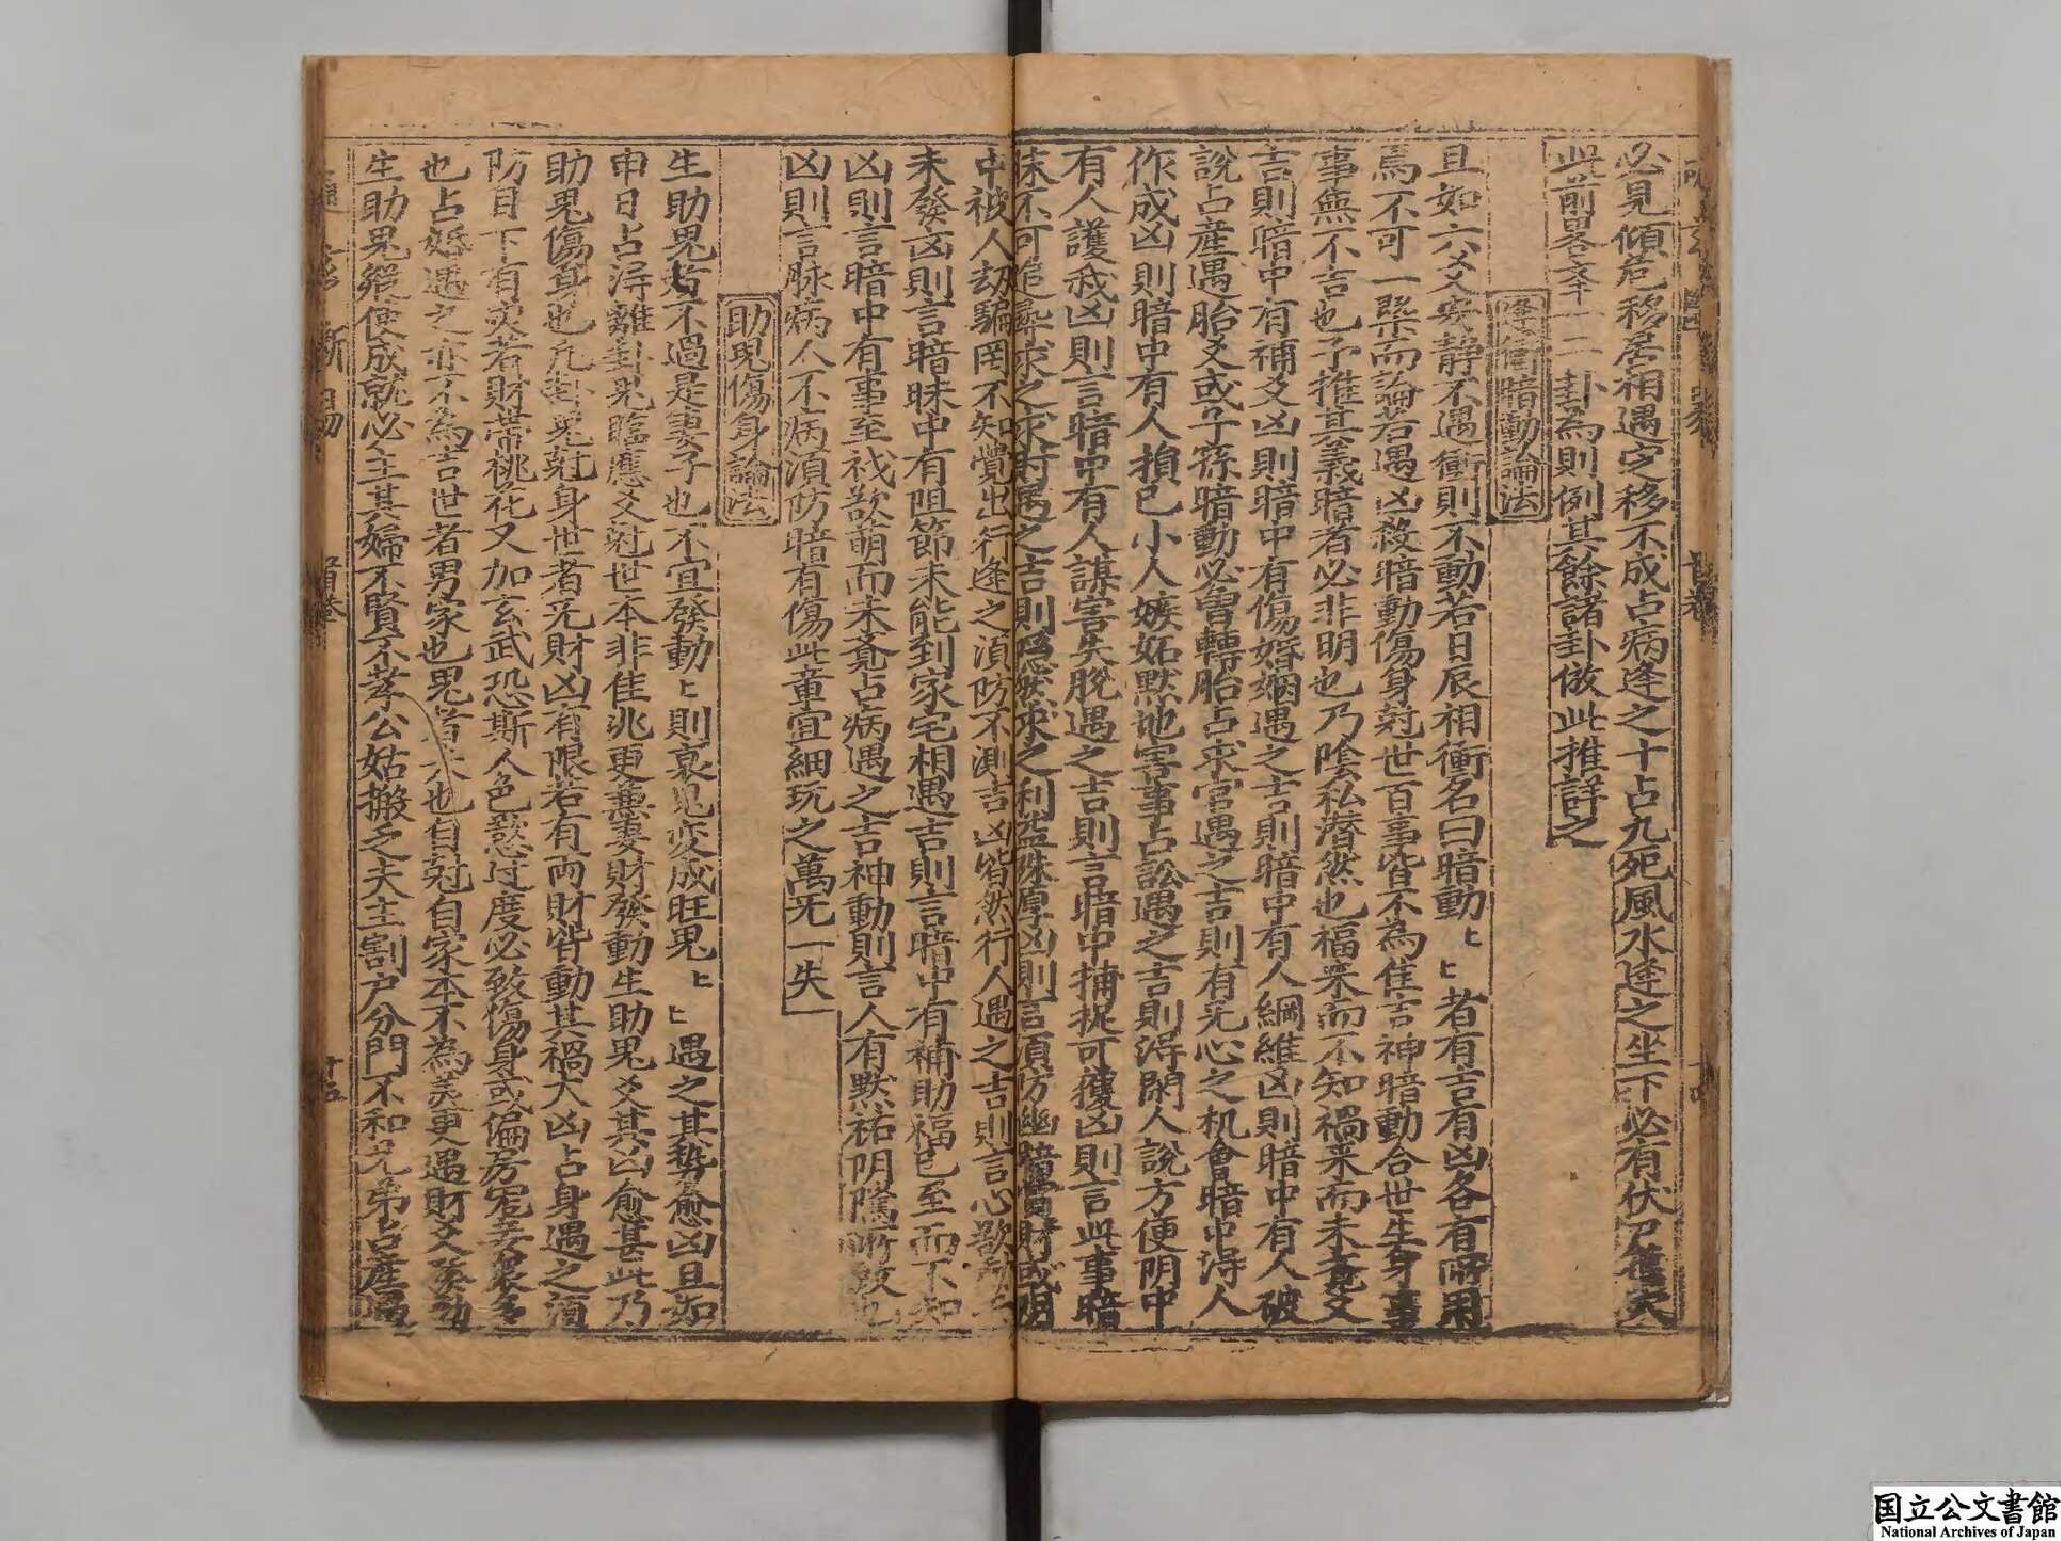 必見傾危移居相遇定移不成占病逢之十占九死風水逢之坐下必有伏
此前畧文十二卦為則例其餘諸卦倣此推詳之
暗動論法
且如六爻安静不遇衝則不動若日辰相衝名曰暗動〻〻者有吉有凶各有所用
焉不可一槩而論若遇凶殺暗動傷身尅世百事皆不為佳吉神暗動合世生身事
事無不吉也予推其義暗者必非明也乃陰私潜然也福来而不知禍来而未覚又
吉則暗中有補爻凶則暗中有傷婚姻遇之吉則暗中有人綱維凶則暗中有人破
說占産遇胎爻或子孫暗動必曾轉胎占求官遇之吉則有无心之机會暗中淂人
作成凶則暗中有人損已小人嫉妬黙地害事占訟遇之吉則淂閑人說方便阴中
有人護我凶則言暗中有人謀害失脫遇之吉則言暗中捕捉可獲凶則言此事暗
昧不可追尋求之求財遇之吉則求之利益殊厚凶則言須防幽暗財或阴
中被人刼騙罔不知覺出行逢之湏防不測吉凶皆然行人遇之吉則言心欲動
未發凶則言暗昧中有阻節未能到家宅相遇吉則言暗中有補助福已至而不知
凶則言暗中有事至禍欲萌而未覚占病遇之吉神動則言人有黙祐阴隲所致也
凶則言脉病人不病湏防暗有傷此章宜細玩之萬无一失
助鬼傷身論法
生助鬼者不過是妻子也不宜發動〻則衰鬼变成旺鬼〻〻遇之其勢愈凶且如
申日占淂離卦鬼臨應爻尅世本非佳兆更兼妻財發動生助鬼爻其凶愈甚此乃
助鬼傷身也凡卦鬼尅身世者无財凶有限若有両財皆動其禍大凶占身遇之湏
防目下有灾若財帯桃花又加玄武恐斯人色慾过度必致傷身或偏房宠妾衆多
也占婚遇之亦不為吉世者男家也鬼者也自尅自家本不為美更遇財爻發動
生助鬼縱使成就必主其婦不賢不孝公姑搬乏夫主割户分門不和兄弟占産遇
断易
首卷
十五
国立公文書館
National Archives of Japan